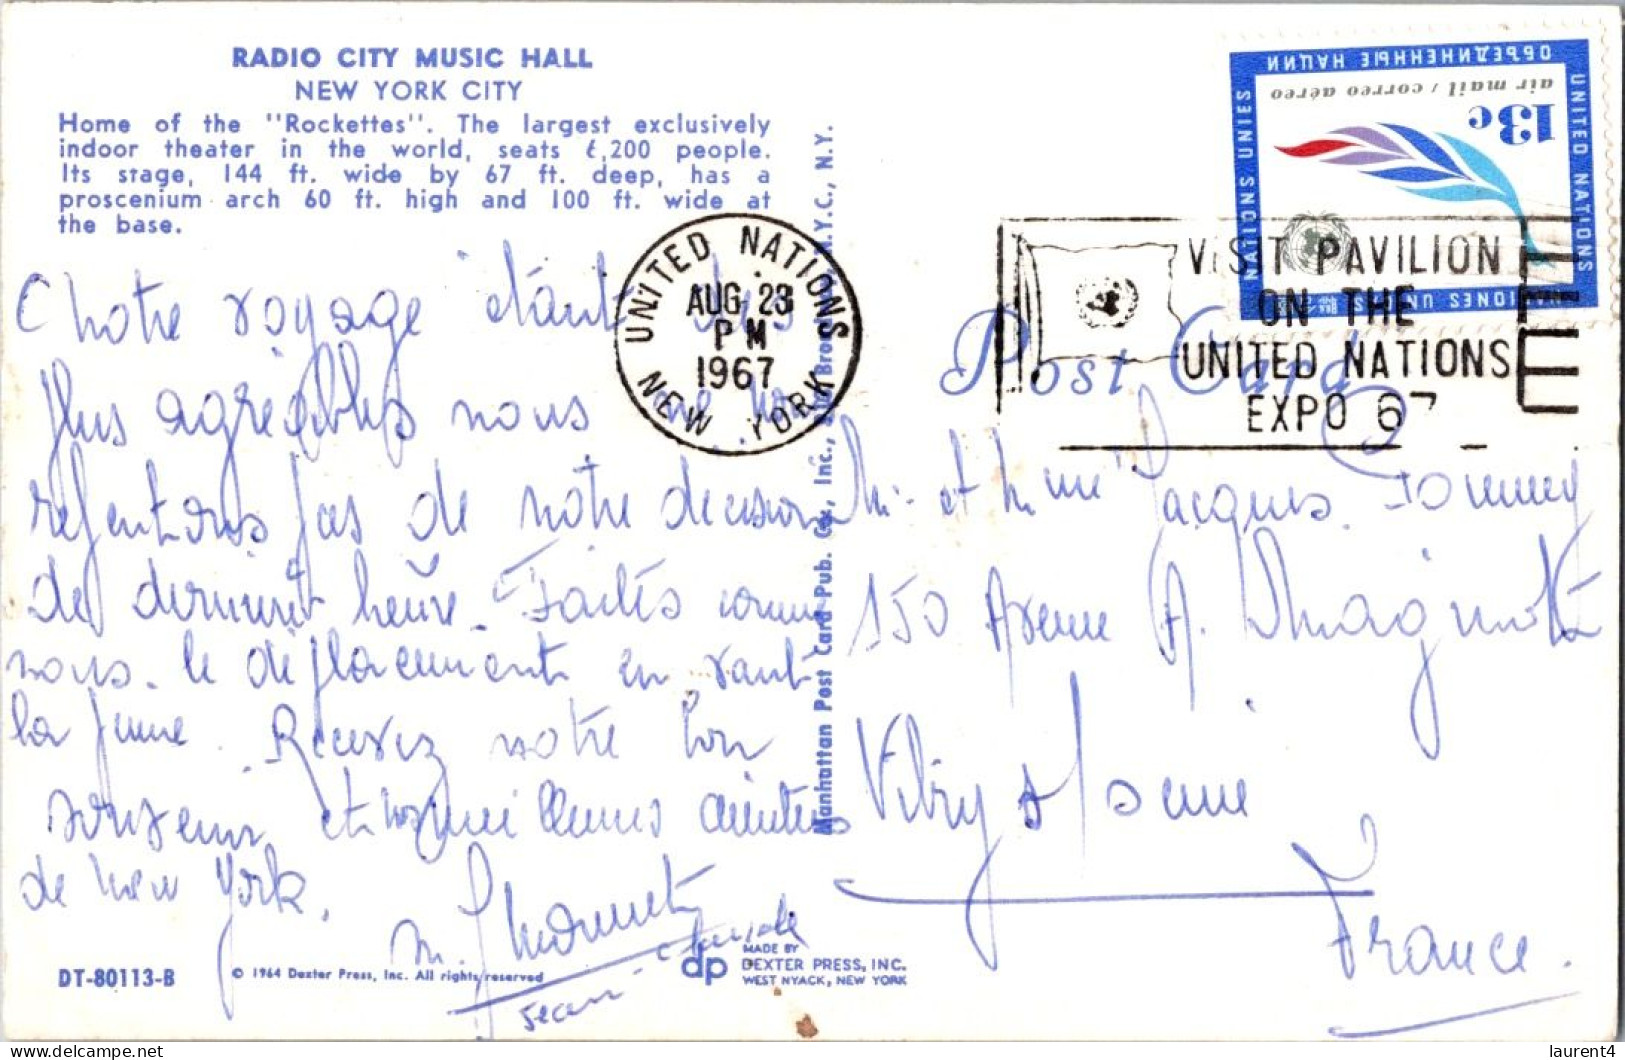 RADIO CITY MUSIC HALL
NEW YORK CITY
Home of the "Rockettes". The largest exclusively
indoor theater in the world, seats 6,200 people.
Its stage, 144 ft. wide by 67 ft. deep, has a
proscenium arch 60 ft. high and 100 ft. wide at
the base.
notre voyage étant des
plus agréables nous ne nous
repentons pas de notre decision
de dernière heure. Faites comme
nous. le déplacement en vaut
la peine. Recevez notre bon
souvenir et meilleures amitiés
de New York.
M.
Jean-Claude
DT-80113-B
© 1964 Dexter Press, Inc. All rights reserved
dp
MADE BY
DEXTER PRESS, INC.
WEST NYACK, NEW YORK
Manhattan Post Card Pub. Co., Inc., Broadway, N.Y.C., N.Y.
UNITED NATIONS
AUG 23
PM
1967
NEW YORK
VISIT PAVILION
ON THE
UNITED NATIONS
EXPO 67
NATIONS UNIES
ОБЪЕДИНЕННЫЕ НАЦИИ
UNITED NATIONS
NACIONES UNIDAS
air mail / correo aéreo
13c
Post Card
Mr et Mme Jacques
150 Avenue A.
Vitry s/ Seine
France.
laurent4